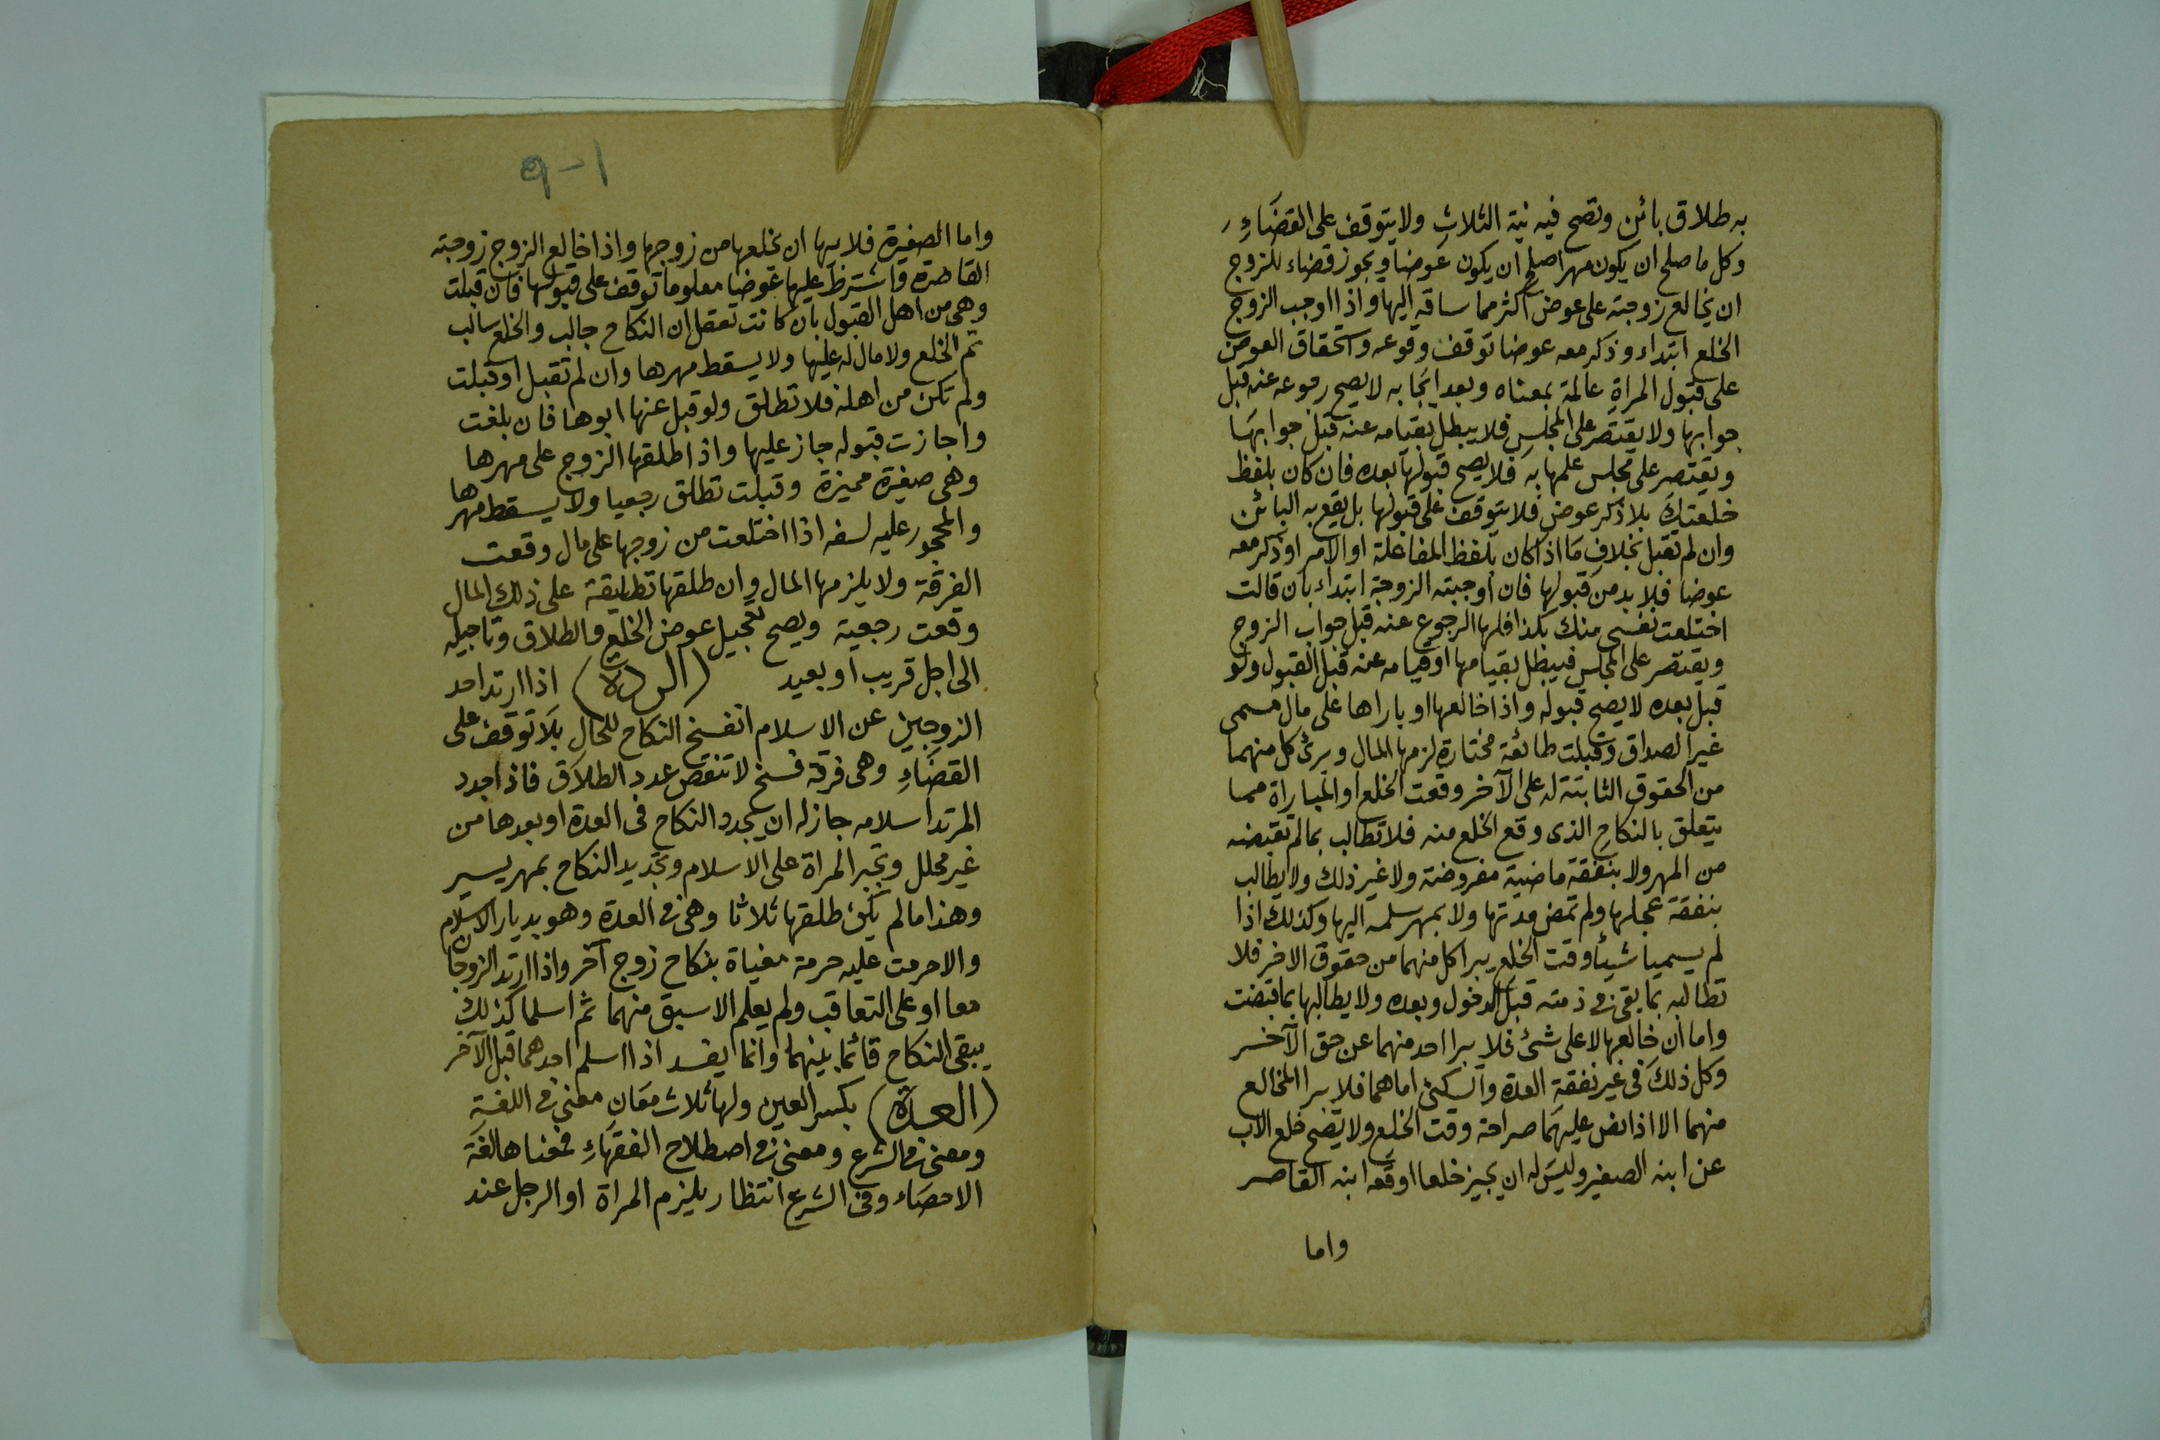 به طلاق بائن وتصح فيه نية الثلاث ولا يتوقف على القضاء
وكل ما صلح ان يكون مهرا صلح ان يكون عوضا ويجوز قضاء للزوج
ان يخالع زوجته على عوض اكثر مما ساقه اليها واذا اوجب الزوج
الخلع ابتداء وذكر معه عوضا توقف وقوعه واستحقاق العوض
على قبول المراة عالمة بمعناه وبعد ايجابه لا يصح رجوعه عنه قبل
جوابها ولا يقتصر على المجلس فلا يبطل بقيامه عنه قبل جوابها
ويقتصر على مجلس علمها به فلا يصح قبولها بعده فان كان بلفظ
خلعتك بلا ذكر عوض فلا يتوقف على قبولها بل يقع به البائن
وان لم تقبل بخلاف ما اذا كان بلفظ المفاعلة او الامر او ذكر معه
عوضا فلا بد من قبولها فان اوجبته الزوجة ابتداء بان قالت
اختلعت نفسى منك بكذا فلها الرجوع عنه قبل جواب الزوج
ويقتصر على المجلس فيبطل بقيامها او قيامه عنه قبل القبول ولو
قبل بعده لا يصح قبوله واذا خالعها او باراها على مال مسمى
غير الصداق وقبلت طائعة مختارة لزمها المال وبرئ كل منهما
من الحقوق الثابتة له على الآخر وقت الخلع او المباراة مما
يتعلق بالنكاح الذى وقع الخلع منه فلا تطالب بما لم تقبضه
من المهر ولا بنفقة ماضية مفروضة ولا غير ذلك ولا يطالب
بنفقة عجلها ولم تمض مدتها ولا بمهر سلمه اليها وكذلك اذا
لم يسميا شيئا وقت الخلع يبرا كل منهما من حقوق الاخر فلا
تطالبه بما بقى فى ذمته قبل الدخول وبعده ولا يطالبها بما قبضت
واما ان خالعها لا على شئ فلا يبرا احد منهما عن حق الآخر
وكل ذلك فى غير نفقة العدة والسكنى اما هما فلا يبرا المخالع
منهما الا اذا نص عليهما صراحة وقت الخلع ولا يصح خلع الاب
عن ابنه الصغير وليس له ان يجيز خلعا اوقعه ابنه القاصر
واما
١-٩
واما الصغيرة فلابيها ان يخلعها من زوجها واذا خالع الزوج زوجته
القاصرة واشترط عليها عوضا معلوما توقف على قبولها فان قبلت
وهى من اهل القبول بان كانت تعقل ان النكاح جالب والخلع سالب
تم الخلع ولا مال له عليها ولا يسقط مهرها وان لم تقبل او قبلت
ولم تكن من اهله فلا تطلق ولو قبل عنها ابوها فان بلغت
واجازت قبوله جاز عليها واذا طلقها الزوج على مهرها
وهى صغيرة مميزة وقبلت تطلق رجعيا ولا يسقط مهرها
والمحجور عليه لسفه اذا اختلعت من زوجها على مال وقعت
الفرقة ولا يلزمها المال وان طلقها تطليقة على ذلك المال
وقعت رجعية ويصح تعجيل عوض الخلع والطلاق وتاجيله
الى اجل قريب او بعيد (الردة) اذا ارتد احد
الزوجين عن الاسلام انفسخ النكاح للحال بلا توقف على
القضاء وهى فرقة فسخ لا تنقص عدد الطلاق فاذا جدد
المرتد اسلامه جاز له ان يجدد النكاح فى العدة او بعدها من
غير محلل وتجبر المراة على الاسلام وتجديد النكاح بمهر يسير
وهذا ما لم يكن طلقها ثلاثا وهى فى العدة وهو بديار الاسلام
والا حرمت عليه حرمة مغياة بنكاح زوج آخر واذا ارتد الزوجان
معا او على التعاقب ولم يعلم الاسبق منهما ثم اسلما كذلك
يبقى النكاح قائما بينهما وانما يفسد اذا اسلم احدهما قبل الآخر
(العدة) بكسر العين ولها ثلاث معان معنى فى اللغة
ومعنى فى الشرع ومعنى فى اصطلاح الفقهاء فمعناها لغة
الاحصاء وفى الشرع انتظار يلزم المراة او الرجل عند